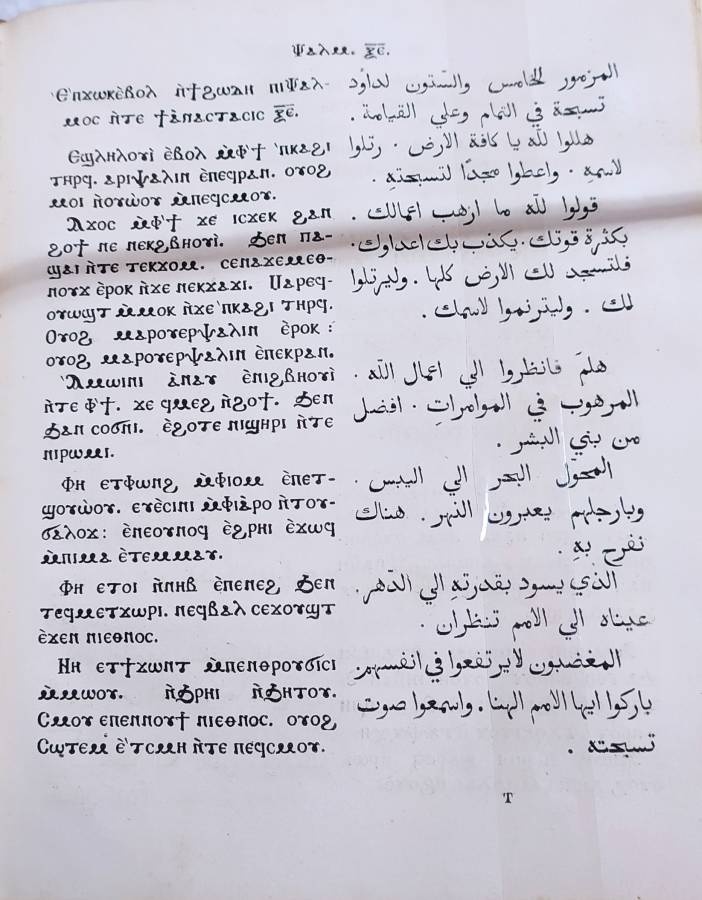 Ⲯⲁⲗⲙ. ⲝ̅ⲉ̅.
Ⲉⲡϫⲱⲕⲉ̀ⲃⲟⲗ ⲛ̀ϯϩⲱⲇⲏ ⲡⲓⲮⲁⲗ-
ⲙⲟⲥ ⲛ̀ⲧⲉ ϯⲁ̀ⲛⲁⲥⲧⲁⲥⲓⲥ ⲝ̅ⲉ̅.
Ⲉϣⲗⲏⲗⲟⲩⲓ̀ ⲉ̀ⲃⲟⲗ ⲙ̀Ⲫϯ ̀ⲡⲕⲁϩⲓ
ⲧⲏⲣϥ. ⲁⲣⲓⲯⲁⲗⲓⲛ ⲉ̀ⲡⲉϥⲣⲁⲛ. ⲟⲩⲟϩ
ⲙⲟⲓ ⲛ̀ⲟⲩⲱⲟⲩ ⲙ̀ⲡⲉϥⲥⲙⲟⲩ.
Ⲁϫⲟⲥ ⲙ̀Ⲫϯ ϫⲉ ⲓⲥϫⲉⲕ ϩⲁⲛ
ϩⲟϯ ⲛⲉ ⲛⲉⲕϩⲃⲏⲟⲩⲓ̀. Ϧⲉⲛ ⲡⲁ-
ϣⲁⲓ ⲛ̀ⲧⲉ ⲧⲉⲕϫⲟⲙ. ⲥⲉⲛⲁϫⲉⲙⲉⲑ-
ⲛⲟⲩϫ ⲉ̀ⲣⲟⲕ ⲛ̀ϫⲉ ⲛⲉⲕϫⲁϫⲓ. Ⲙⲁⲣⲉϥ-
ⲟⲩⲱϣⲧ ⲙ̀ⲙⲟⲕ ⲛ̀ϫⲉ ̀ⲡⲕⲁϩⲓ ⲧⲏⲣϥ.
Ⲟⲩⲟϩ ⲙⲁⲣⲟⲩⲉⲣⲯⲁⲗⲓⲛ ⲉ̀ⲣⲟⲕ :
ⲟⲩⲟϩ ⲙⲁⲣⲟⲩⲉⲣⲯⲁⲗⲓⲛ ⲉ̀ⲡⲉⲕⲣⲁⲛ.
̀Ⲁⲙⲱⲓⲛⲓ ⲁ̀ⲛⲁⲩ ⲉ̀ⲛⲓϩⲃⲏⲟⲩⲓ̀
ⲛ̀ⲧⲉ Ⲫϯ. ϫⲉ ϥⲙⲉϩ ⲛ̀ϩⲟϯ. Ϧⲉⲛ
ϩⲁⲛ ⲥⲟϭⲛⲓ. ⲉ̀ϩⲟⲧⲉ ⲛⲓϣⲏⲣⲓ ⲛ̀ⲧⲉ
ⲛⲓⲣⲱⲙⲓ.
Ⲫⲏ ⲉⲧⲫⲱⲛϩ ⲙ̀ⲫⲓⲟⲙ ⲉ̀ⲡⲉⲧ-
ϣⲟⲩⲱⲟⲩ. ⲉⲩⲉ̀ⲥⲓⲛⲓ ⲙ̀ⲫⲓⲁ̀ⲣⲟ ⲛ̀ⲧⲟⲩ-
ϭⲁⲗⲟϫ: ⲉ̀ⲛⲉⲟⲩⲛⲟϥ ⲉ̀ϩⲣⲏⲓ ⲉ̀ϫⲱϥ
ⲙ̀ⲡⲓⲙⲁ ⲉ̀ⲧⲉⲙⲙⲁⲩ.
Ⲫⲏ ⲉⲧⲟⲓ ⲛ̀ⲛⲏⲃ ⲉ̀ⲡⲉⲛⲉϩ Ϧⲉⲛ
ⲧⲉϥⲙⲉⲧϫⲱⲣⲓ. ⲛⲉϥⲃⲁⲗ ⲥⲉϫⲟⲩϣⲧ
ⲉ̀ϫⲉⲛ ⲛⲓⲉⲑⲛⲟⲥ.
Ⲛⲏ ⲉⲧϯϫⲱⲛⲧ ⲙ̀ⲡⲉⲛⲑⲣⲟⲩϭⲓⲥⲓ
ⲙ̀ⲙⲱⲟⲩ. ⲛ̀ϧⲣⲏⲓ ⲛ̀ϧⲏⲧⲟⲩ.
Ⲥⲙⲟⲩ ⲉⲡⲉⲛⲛⲟⲩϯ ⲛⲓⲉⲑⲛⲟⲥ. ⲟⲩⲟϩ
Ⲥⲱⲧⲉⲙ ⲉ̀ ̀ⲧⲥⲙⲏ ⲛ̀ⲧⲉ ⲡⲉϥⲥⲙⲟⲩ.
المزمور الخامس والستون لداوُد
تسبحة في التمام وعلي القيامة .
هللوا للّه يا كافة الارض . رتلوا
لاسمهِ . واعطوا مجدًا لتسبحتهِ .
قولوا للّه ما ارهب اعمالك .
بكثرة قوتك . يكذب بك اعداوك .
فلتسجد لك الارض كلها . وليرتلوا
لك . وليترنموا لاسمك .
هلمّ فانظروا الي اعمال اللّه .
المرهوب في الموامراتِ . افضل
من بني البشر .
المحوّل البحر الي اليبس .
وبارجلهم يعبرون النهر . هناك
نفرح بهِ .
الذي يسود بقدرتهِ الي الدّهر .
عيناه الي الامم تنظران .
المغضبون لا يرتفعوا في انفسهم.
باركوا ايها الامم الهنا . واسمعوا صوت
تسبحته .
T